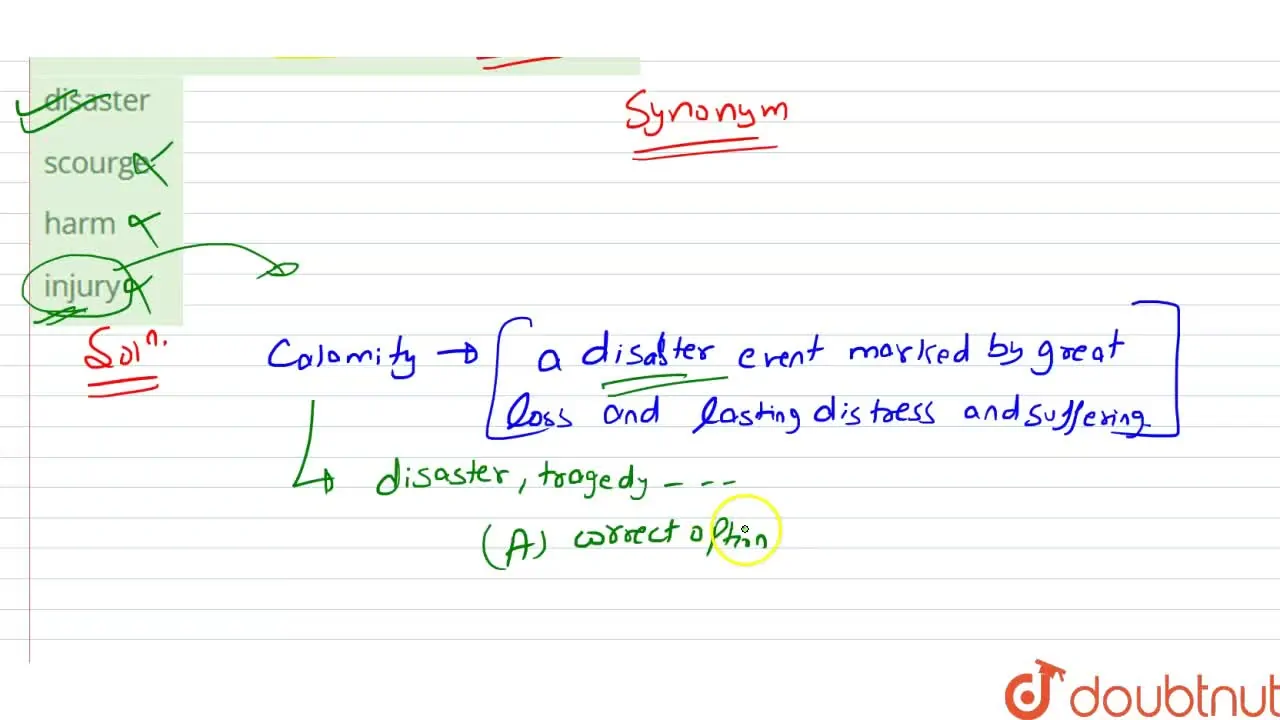 disaster
Synonym
scourge
harm
injury
Soln.
Calamity → a disaster event marked by great
loss and lasting distress and suffering
disaster, tragedy - - -
(A) correct option
doubtnut